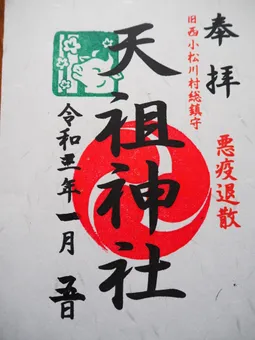 奉拝
旧西小松川村総鎮守
悪疫退散
天祖神社
令和三年一月五日